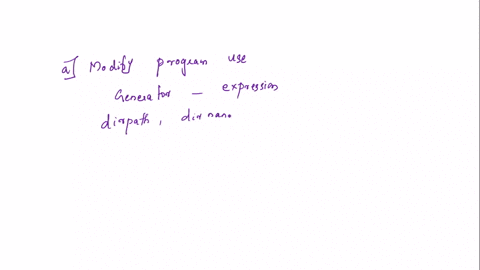 a] Modify program use
Generator – expression
dirpath, dirnam